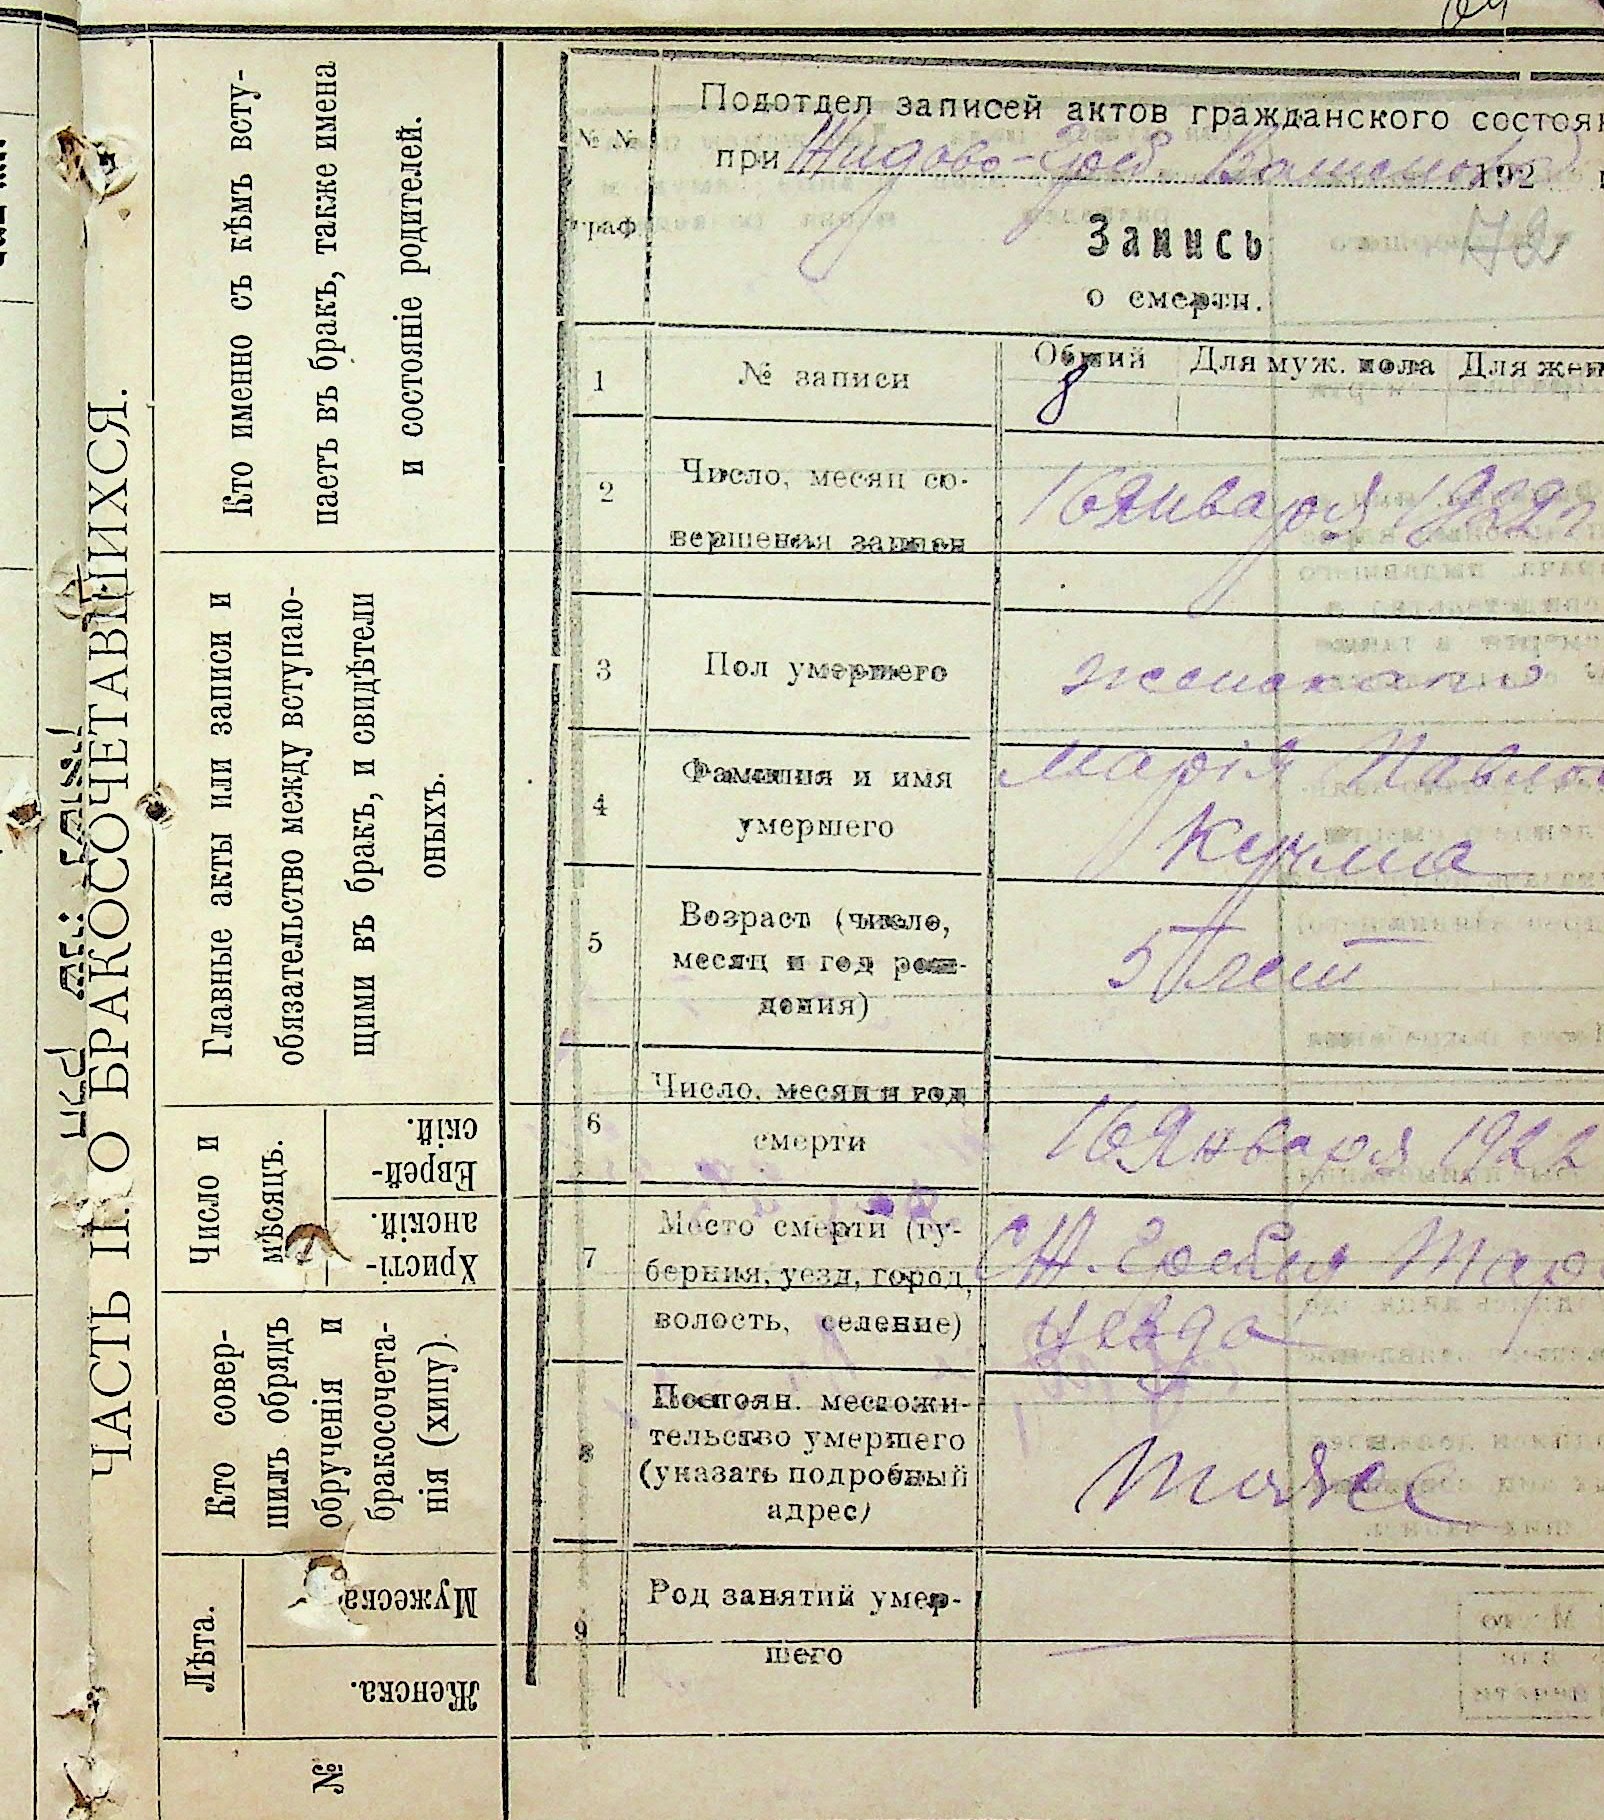 ЧАСТЬ II. О БРАКОСОЧЕТАВШИХСЯ.
Кто именно съ кѣмъ всту-
паетъ въ бракъ, также имена
и состояніе родителей.
Главные акты или записи и
обязательство между вступаю-
щими въ бракъ, и свидѣтели
оныхъ.
Число и
мѣсяцъ.
Еврей-
скій.
Христі-
анскій.
Кто совер-
шилъ обрядъ
обрученія и
бракосочета-
нія (хипу).
Лѣта.
Мужеска
Женска.
№
Подотдел записей актов гражданского состоян
при Жидово-Греб 192
№ №
граф
Запись
о смерти.
1
№ записи
Общий
Для муж. пола
Для жен
8
2
Число, месяц со-
вершения записи
16 Января 1922 г
3
Пол умершего
женскаго
4
Фамилия и имя
умершего
Марія Павлов
Кучма
5
Возраст (число,
месяц и год рож-
дения)
5 лет
6
Число, месяц и год
смерти
16 Января 1922
7
Место смерти (гу-
берния, уезд, город,
волость, селение)
С Ж. Гребля Тара
уезда
8
Постоян. местожи-
тельство умершего
(указать подробный
адрес)
тоже
9
Род занятий умер-
шего